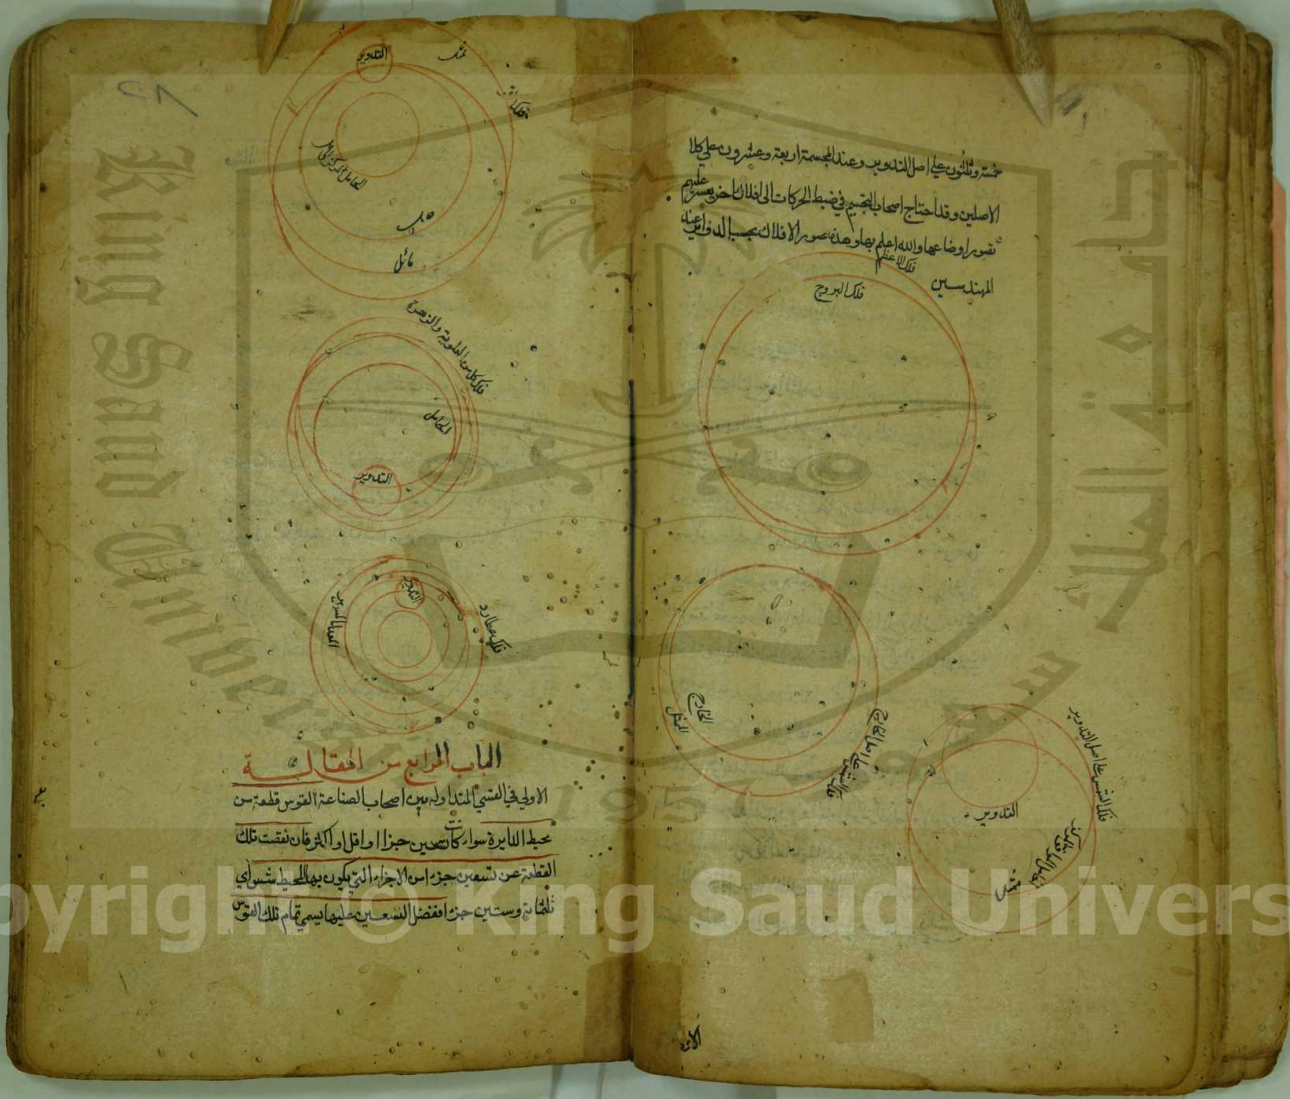 خمسة وثلثون علي اصل التدوير وعند المجسمة اربعة وعشرون علي كلا
الاصلين وقد احتاج اصحاب التجسيم في ضبط الحركات الي افلاك اخر يعسر عليهم
تصور اوضاعها والله اعلم بها وهذه صور الافلاك بحسب الدوائر عند
المهندسين
فلك الاعظم
فلك البروج
الخارج
الممثل
فلك الشمس علي اصل الخارج
فلك الشمس علي اصل التدوير
التدوير
الاولي
٢٨
التدوير
ممثل
فلك القمر
الحامل
مائل
فلك كل من العلوية والزهرة
الحامل
التدوير
فلك عطارد
التدوير
الباب الرابع من المقالة
الاولي في القسي المتداولة بين اصحاب الصناعة القوس قطعة من
محيط الدايرة سواء كانت تسعين جزءا او اقل او اكثر فان نقصت تلك
القطعة عن تسعين جزء من الاجزاء التي يكون بها المحيط شس اي
ثلثمائة وستين جزءا ففضل التسعين عليها يسمي تمام تلك القوس
King Saud University
جامعة الملك سعود
1957
Copyright © King Saud University